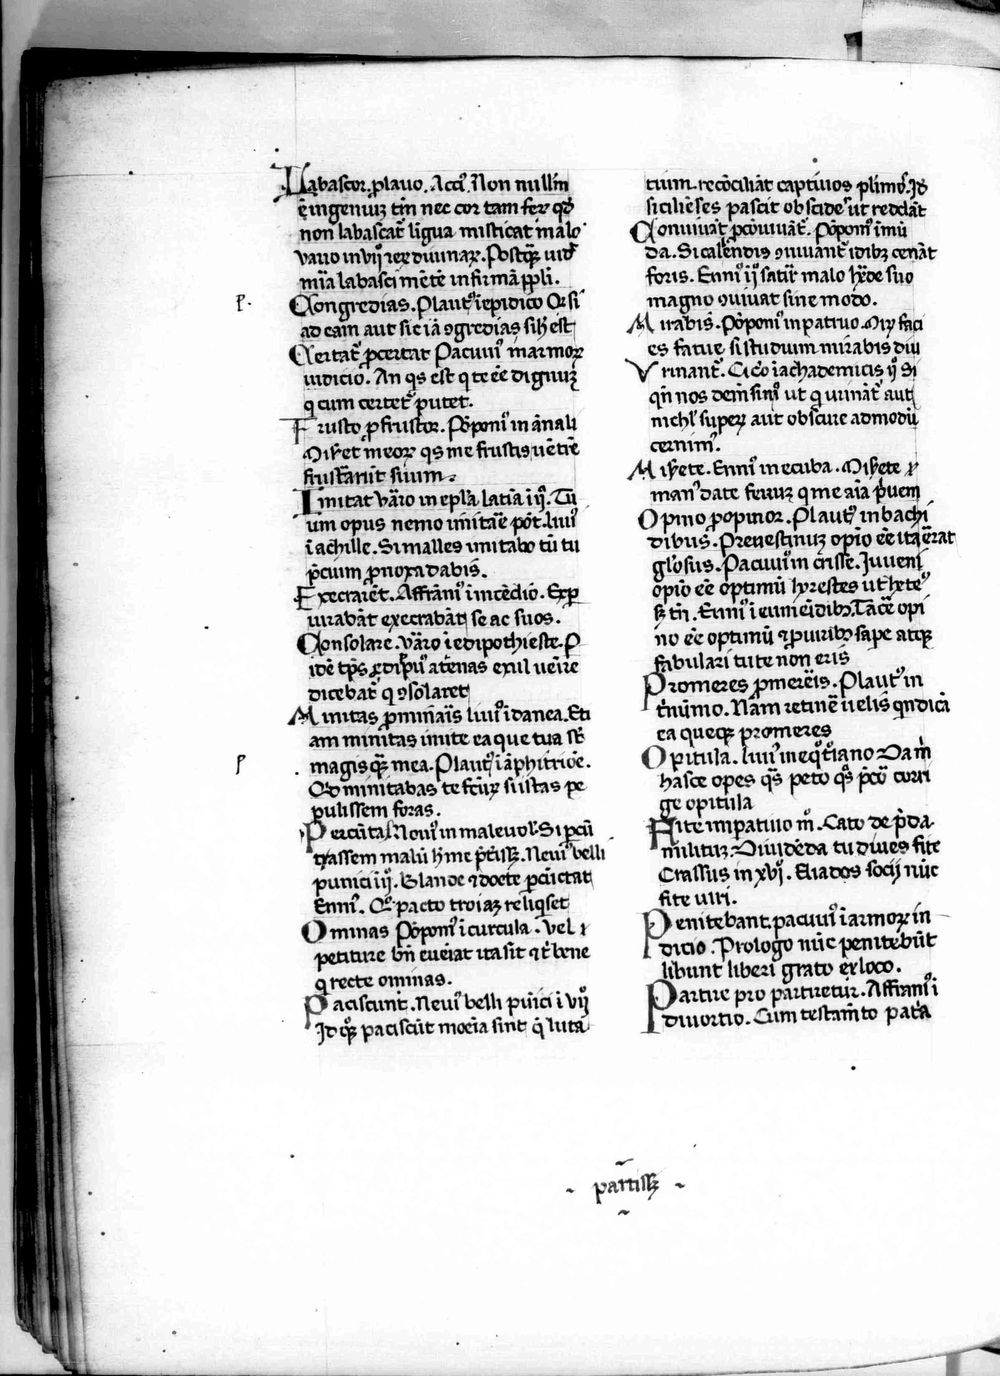 Labascor. plauo. Acci. Non nullim
ē ingenuuz tm̄ nec cor tam ferꝝ qd̄
non labascat̄ ligua misticat malo
varro in vij reꝝ diuinaꝝ. Postqz uidꝫ
mīa labasci mētē infirmā ppli.
p.
Congredias. Plaut᷒ ī epidico Or si
ad eam aut sic iā ꝯgredias sibi est
Certat̄ ꝓcertat Pacuui᷒ in armoꝝ
iudicio. An qs est q te eē dignuꝫ
q cum certet᷒ putet.
Frusto ꝓ frustor. Pōponi᷒ in ānali
Mis͛et meoꝝ qs me frustis uētrē
frustrarūt suum.
Imitat Vārro in epla latīa iij. Tu
um opus nemo imitaē pōt. liui᷒
ī achille. Si malles imitabo tū tu
p̄cium ꝓ noxa dabis.
Execraīet. Affrāni᷒ ī incēdio. Exp
uirabāt execrabāt se ac suos.
Consolare. Vāro ī edipothieste. P
idē tps̄ ꝙ dipū atēnas exul uēīre
dicebat᷒ q ꝯsolaret
Minitas ꝓ minaīs liui᷒ ī danea. Eti
am minitas inite ea que tua st̄
p
magisqz mea. Plaut᷒ ī āphitriōe.
Qd̄ minitabas te fcūꝝ si istas pe
pulissem foras.
Percūtas. Noui᷒ in maleuol᷒. Si pcū
tassem malū h̄ me pt̄issꝫ. Neui᷒ belli
punici iij. Blande ⁊ docte pcūctat
Enni᷒. Qō pacto troiaz reliqset
Ominas Pōponi᷒ ī curcula. Vel ⁊
petitire bn̄ eueiat ita sit ⁊ t̄ bene
q recte ominas.
Paciscunt. Neui᷒ belli pūici ī vij
Id qz paciscūt moeīa sint q̄ luta
tium. recōciliāt captiuos plimos. Id
siciliēses pascit obscide᷒ ut reddāt
Conuiuāt ꝓ cōuiuāt̄. Pōponi᷒ ī mū
da. Si calēndis ꝯuiuant idibꝫ cenāt
foris. Enni᷒ iij satir᷒ malo hꝫde suo
magno ꝯuiuat sine modo.
Mirabis. Pōponi᷒ in patruo. Miꝝ faci
es fatue si studium mirabis diu
Vrinant̄. Cic͛o ī achademicis ij Si
qn̄ nos dem͛sim᷒ ut q urināt᷒ aut
nichl᷒ supeꝝ aut obscure admodū
cernim᷒.
Mis͛ete. Enni᷒ in ecuba. Mis͛ete ⁊
man᷒ date feꝝꝝ q me aīa p̄uem
Opino ꝓ opinor. Plaut᷒ in bachi
dibus. Preuestinuz opio eē ita erat
gl᷒osus. Pacuui᷒ in crisse. Iuueni
opīo eē optimū hyrestes ut hꝫte᷒
sꝫ tn̄. Enni᷒ ī eumēidibꝫ. Tacē opi
no eē optimū ⁊ p uiribꝫ sape atqz
fabulari tu te non eris
Promeres ꝓmerēis. Plaut᷒ in
tn̄ūmo. Nām retinē uelis qn dicā
ea quecqz promeres
Opitula. liui᷒ in eqt̄iano Da m̄
hasce opes qs peto qs p̄cō corri
ge opitula
Fite impatiuo m̄. Cato de p̄da
militūz. Diuidēda tu diues fite
Crassus in xvj. Eliados socij nūc
fite uiri.
Penitebant. pacuui᷒ ī armoꝝ in
dicio. Prologo nūc penitebūt
libunt liberi grato ex loco.
Partire pro partiretur. Affrani᷒ ī
diuortio. Cum testam̄to patā
partissꝫ